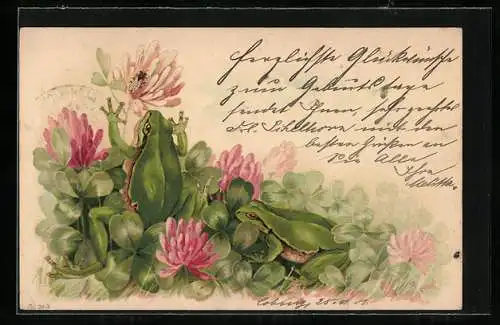 Herzlichste Glückwünsche
zum Geburtstage
sendet Ihnen, sehr geehrtes
Frl. Schelhorn mit den
besten Grüßen an
Sie Alle
Ihre
Coburg, 25.